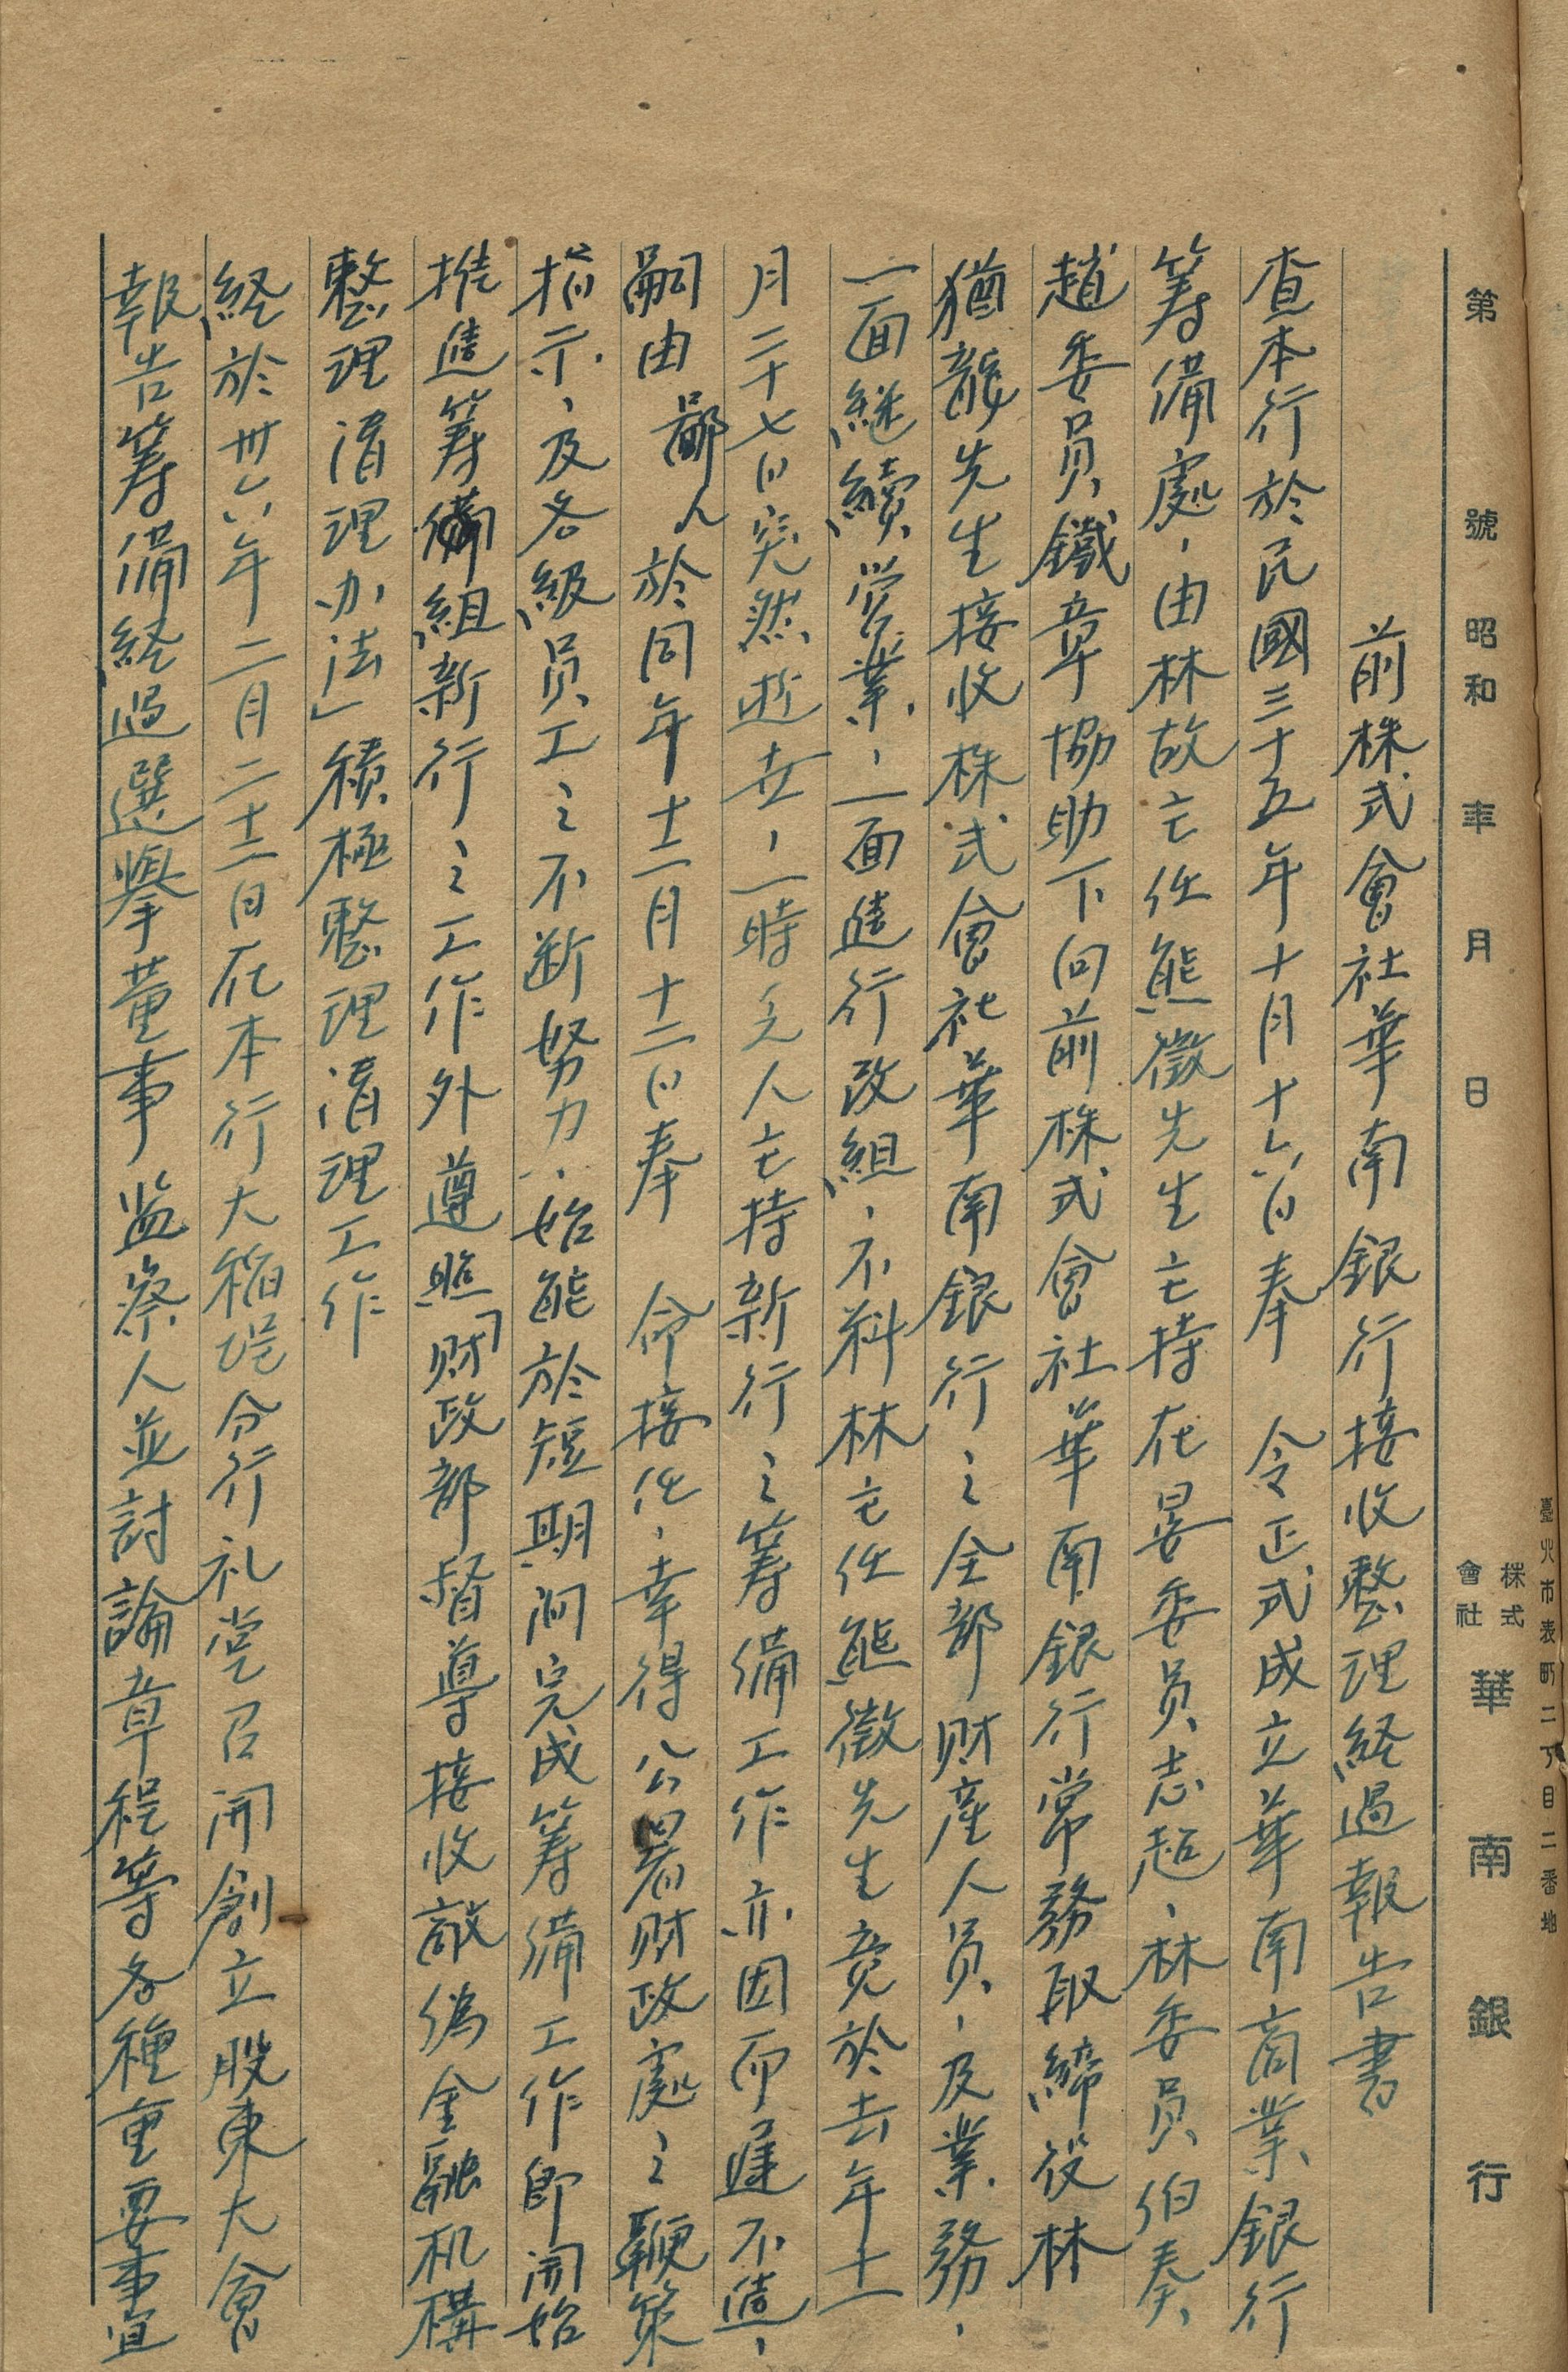 臺北市表町二丁目二番地
株式會社 華南銀行
第 號 昭和 年 月 日
前株式會社華南銀行接收整理経過報告書
查本行於民國三十五年十月十六日奉 令正式成立華南商業銀行
筹備處、由林故主任熊徵先生主持在晏委员志超、林委员伯奏、
趙委员鐵章協助下向前株式會社華南銀行常務取締役林
猶龍先生接收株式會社華南銀行之全部财產人员、及業務、
一面継續営業、一面進行改組、不料林主任熊徵先生竟於去年十一
月二十七日突然逝去、一時乏人主持新行之筹備工作亦因而遲不進、
嗣由鄙人於同年十二月十二日奉 命接任、幸得公署财政處之鞭策
指示、及各級员工之不断努力、始能於短期间完成筹備工作即開始
推進筹備組新行之工作外遵照「财政部督導接收敵偽金融机構
整理清理办法」積極整理清理工作
経於卅六年二月二十二日在本行大稻埕分行礼堂召開創立股東大會
報告筹備経過選舉董事监察人並討論章程等各種重要事宜